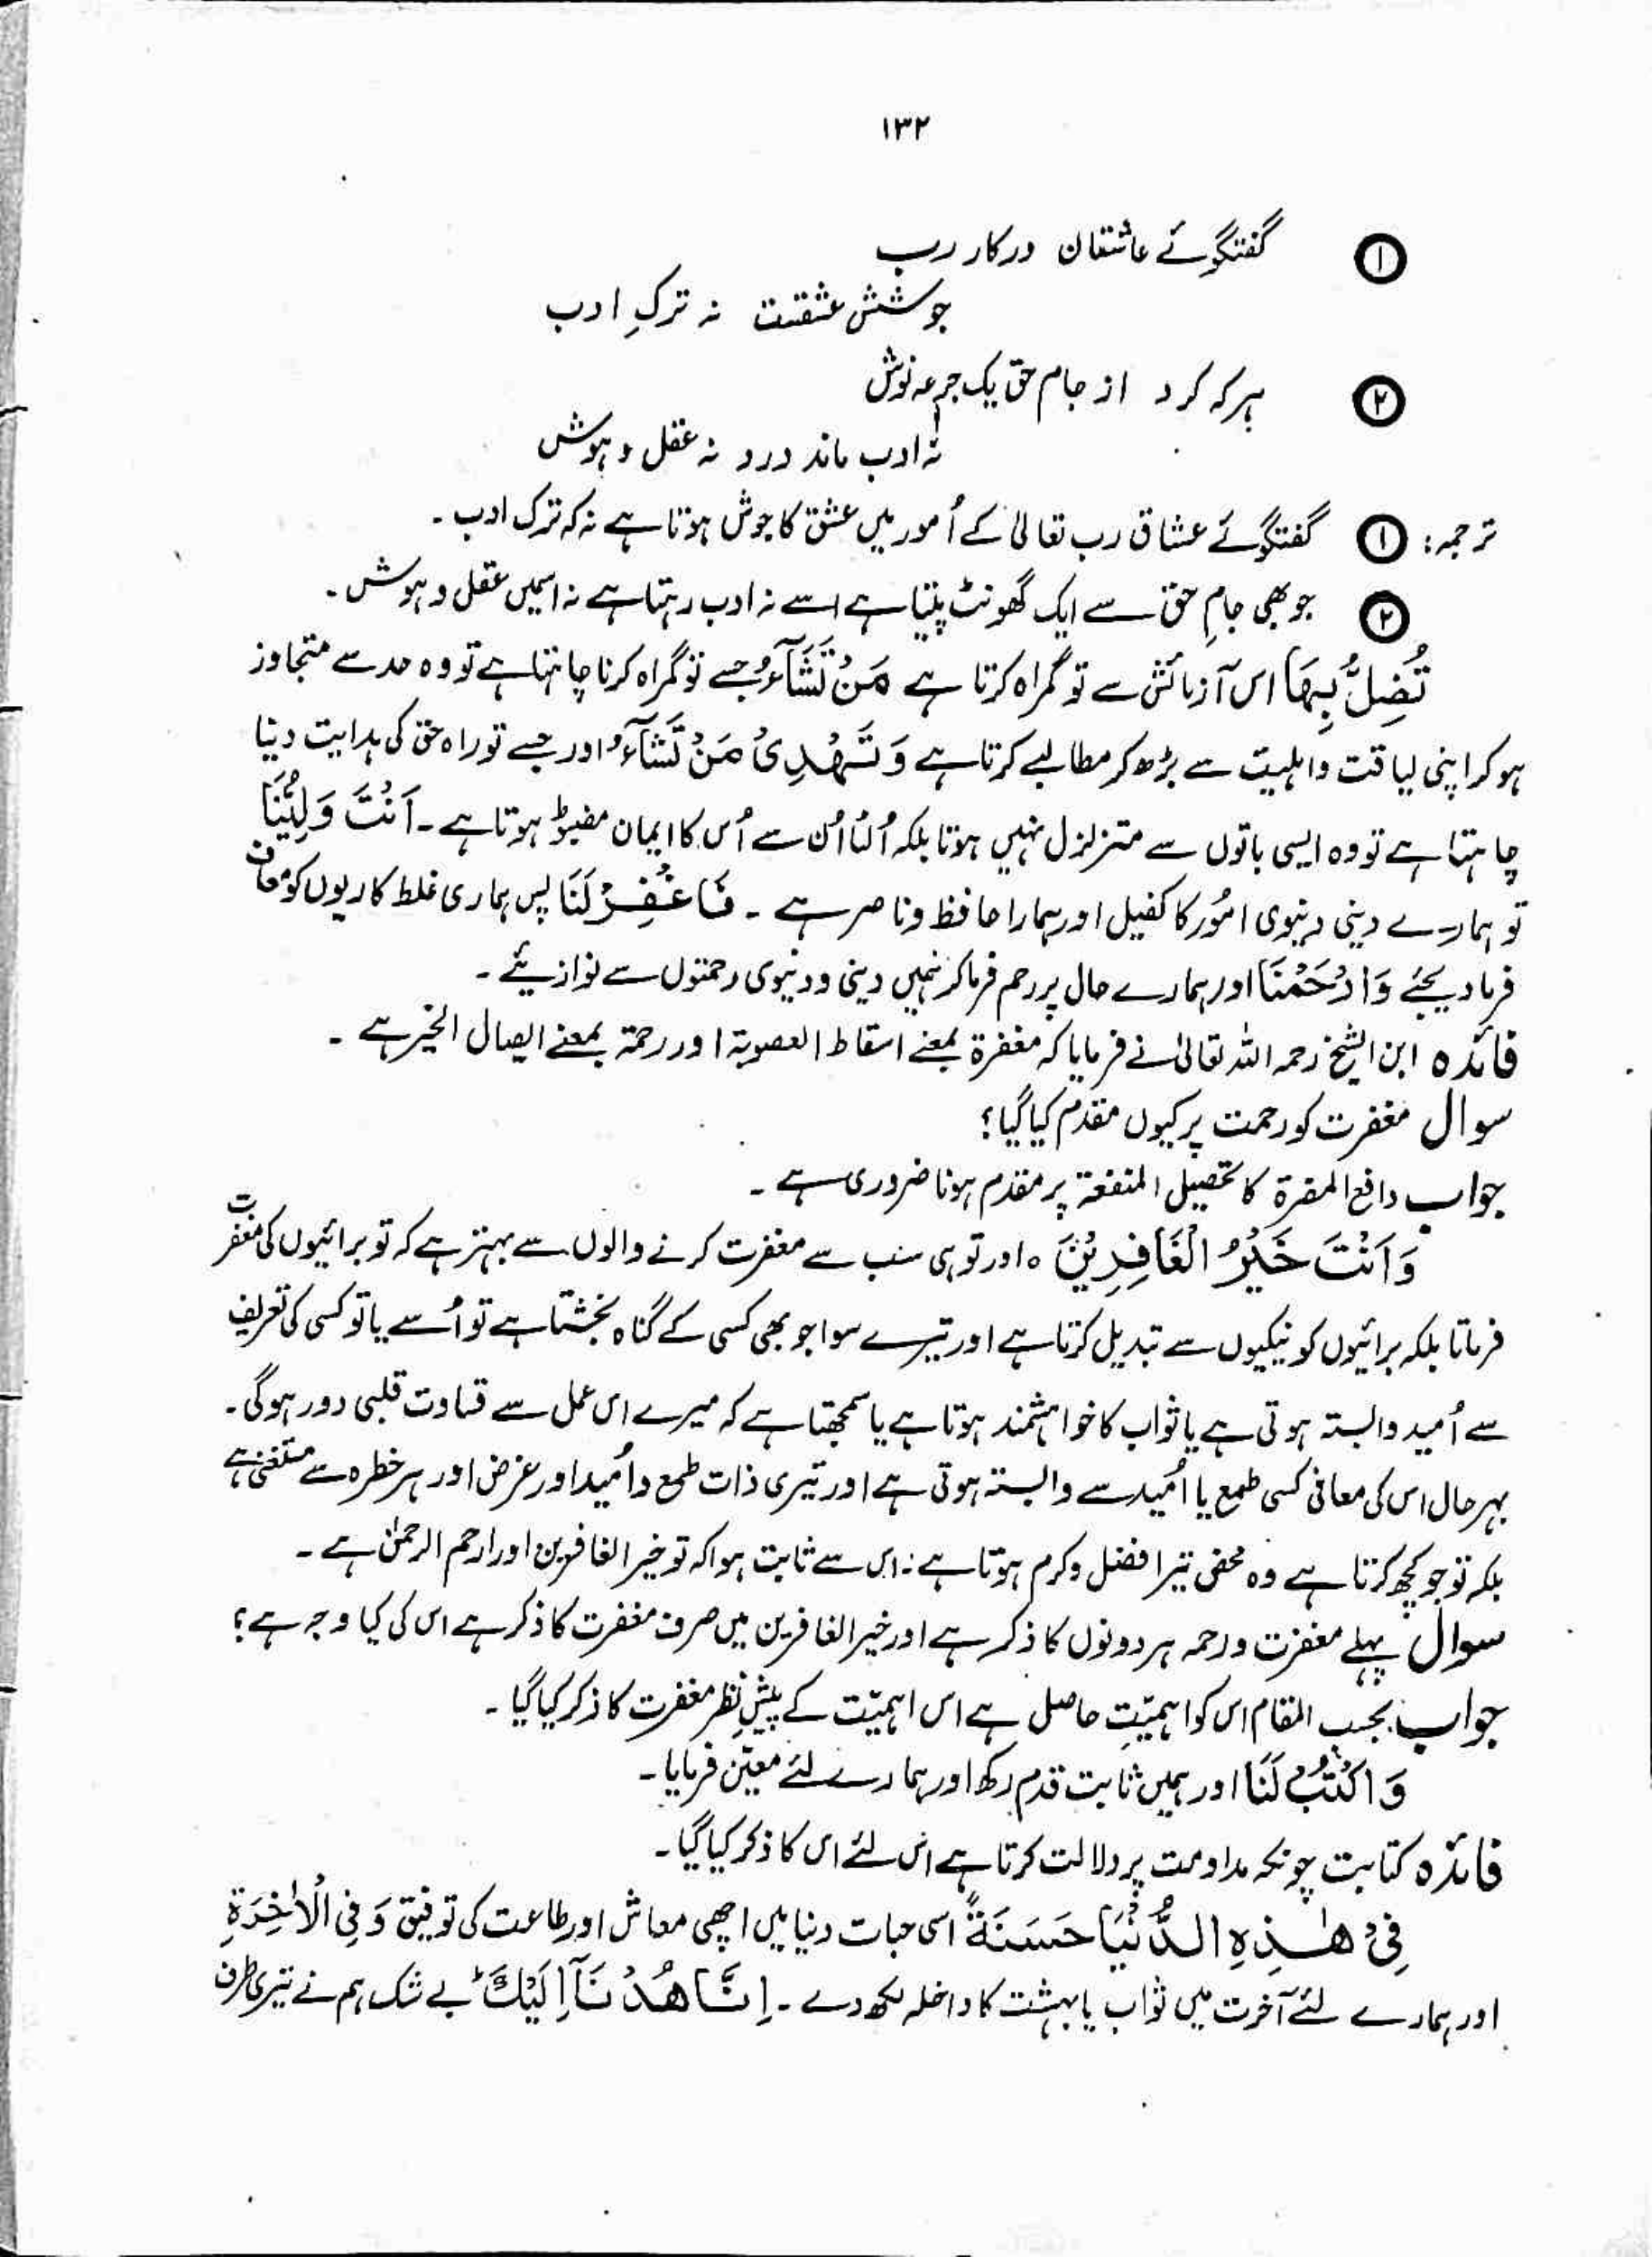 ۱۳۲
① گفتگوئے عاشقان درکار رب
جوشش عشقت نہ ترکِ ادب
② ہر کہ کرد از جام حق یک جرعہ نوش
نہ ادب ماند درد نہ عقل و ہوش
ترجمہ: ① گفتگوئے عشاق رب تعالیٰ کے اُمور میں عشق کا جوش ہوتا ہے نہ کہ ترک ادب۔
② جو بھی جامِ حق سے ایک گھونٹ پیتا ہے اسے نہ ادب رہتا ہے نہ اسمیں عقل و ہوش۔
تُضِلُّ بِهَا اس آزمائش سے تو گمراہ کرتا ہے مَنْ تَشَآءُ جسے تو گمراہ کرنا چاہتا ہے تو وہ حد سے متجاوز
ہو کر اپنی لیاقت واہلیت سے بڑھ کر مطالبے کرتا ہے وَ تَهْدِیْ مَنْ تَشَآءُ اور جسے تو راہ حق کی ہدایت دینا
چاہتا ہے تو وہ ایسی باتوں سے متزلزل نہیں ہوتا بلکہ اُلٹا اُن سے اُس کا ایمان مضبوط ہوتا ہے۔ اَنْتَ وَلِیُّنَا
تو ہمارے دینی دنیوی امُور کا کفیل اور ہمارا حافظ وناصر ہے۔ فَاغْفِرْ لَنَا پس ہماری غلط کاریوں کو معاف
فرما دیجئے وَارْحَمْنَا اور ہمارے حال پر رحم فرماکر ہمیں دینی و دنیوی رحمتوں سے نوازیئے۔
فائدہ ابن الشیخ رحمہ اللہ تعالیٰ نے فرمایا کہ مغفرۃ بمعنے اسقاط العصوبۃ اور رحمۃ بمعنے ایصال الخیر ہے۔
سوال مغفرت کو رحمت پر کیوں مقدم کیا گیا؟
جواب دافع المضرۃ کا تحصیل المنفعۃ پر مقدم ہونا ضروری ہے۔
وَاَنْتَ خَیْرُ الْغَافِرِیْنَ ہ اور تو ہی سب سے مغفرت کرنے والوں سے بہتر ہے کہ تو برائیوں کی مغفرت
فرماتا بلکہ برائیوں کو نیکیوں سے تبدیل کرتا ہے اور تیرے سوا جو بھی کسی کے گناہ بخشتا ہے تو اُسے یا تو کسی کی تعریف
سے اُمید وابستہ ہوتی ہے یا ثواب کا خواہشمند ہوتا ہے یا سمجھتا ہے کہ میرے اس عمل سے قساوت قلبی دور ہوگی۔
بہر حال اس کی معافی کسی طمع یا اُمید سے وابستہ ہوتی ہے اور تیری ذات طمع و اُمید اور غرض اور ہر خطرہ سے مستغنی ہے
بلکہ تو جو کچھ کرتا ہے وہ محض تیرا فضل وکرم ہوتا ہے: اس سے ثابت ہوا کہ تو خیر الغافرین اور ارحم الرحمٰن ہے۔
سوال پہلے مغفرت ورحمہ ہر دونوں کا ذکر ہے اور خیر الغافرین میں صرف مغفرت کا ذکر ہے اس کی کیا وجہ ہے؟
جواب بحسب المقام اس کو اہمیّتِ حاصل ہے اس اہمیّت کے پیشِ نظر مغفرت کا ذکر کیا گیا۔
وَاکْتُبْ لَنَا اور ہمیں ثابت قدم رکھ اور ہمارے لئے معیّن فرمایا۔
فائدہ کتابت چونکہ مداومت پر دلالت کرتا ہے اس لئے اس کا ذکر کیا گیا۔
فِیْ هٰذِهِ الدُّنْیَا حَسَنَةً اسی حیات دنیا میں اچھی معاش اور طاعت کی توفیق وَ فِی الْاٰخِرَةِ
اور ہمارے لئے آخرت میں ثواب یا بہشت کا داخلہ لکھ دے۔ اِنَّا هُدْنَآ اِلَیْكَ ؕ بے شک ہم نے تیری طرف